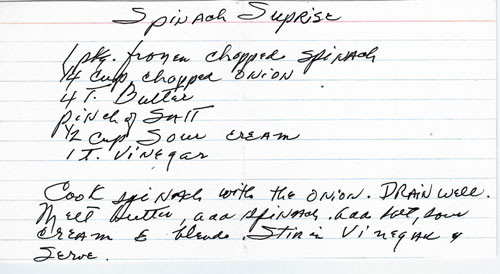 Spinach Suprise
1 pkg. frozen chopped spinach
1/4 cup chopped onion
4 T. Butter
Pinch of Salt
1/2 cup Sour cream
1 T. Vinegar
Cook spinach with the onion. Drain well.
Melt butter, add spinach. Add salt, sour
cream & blend. Stir in Vinegar &
Serve.